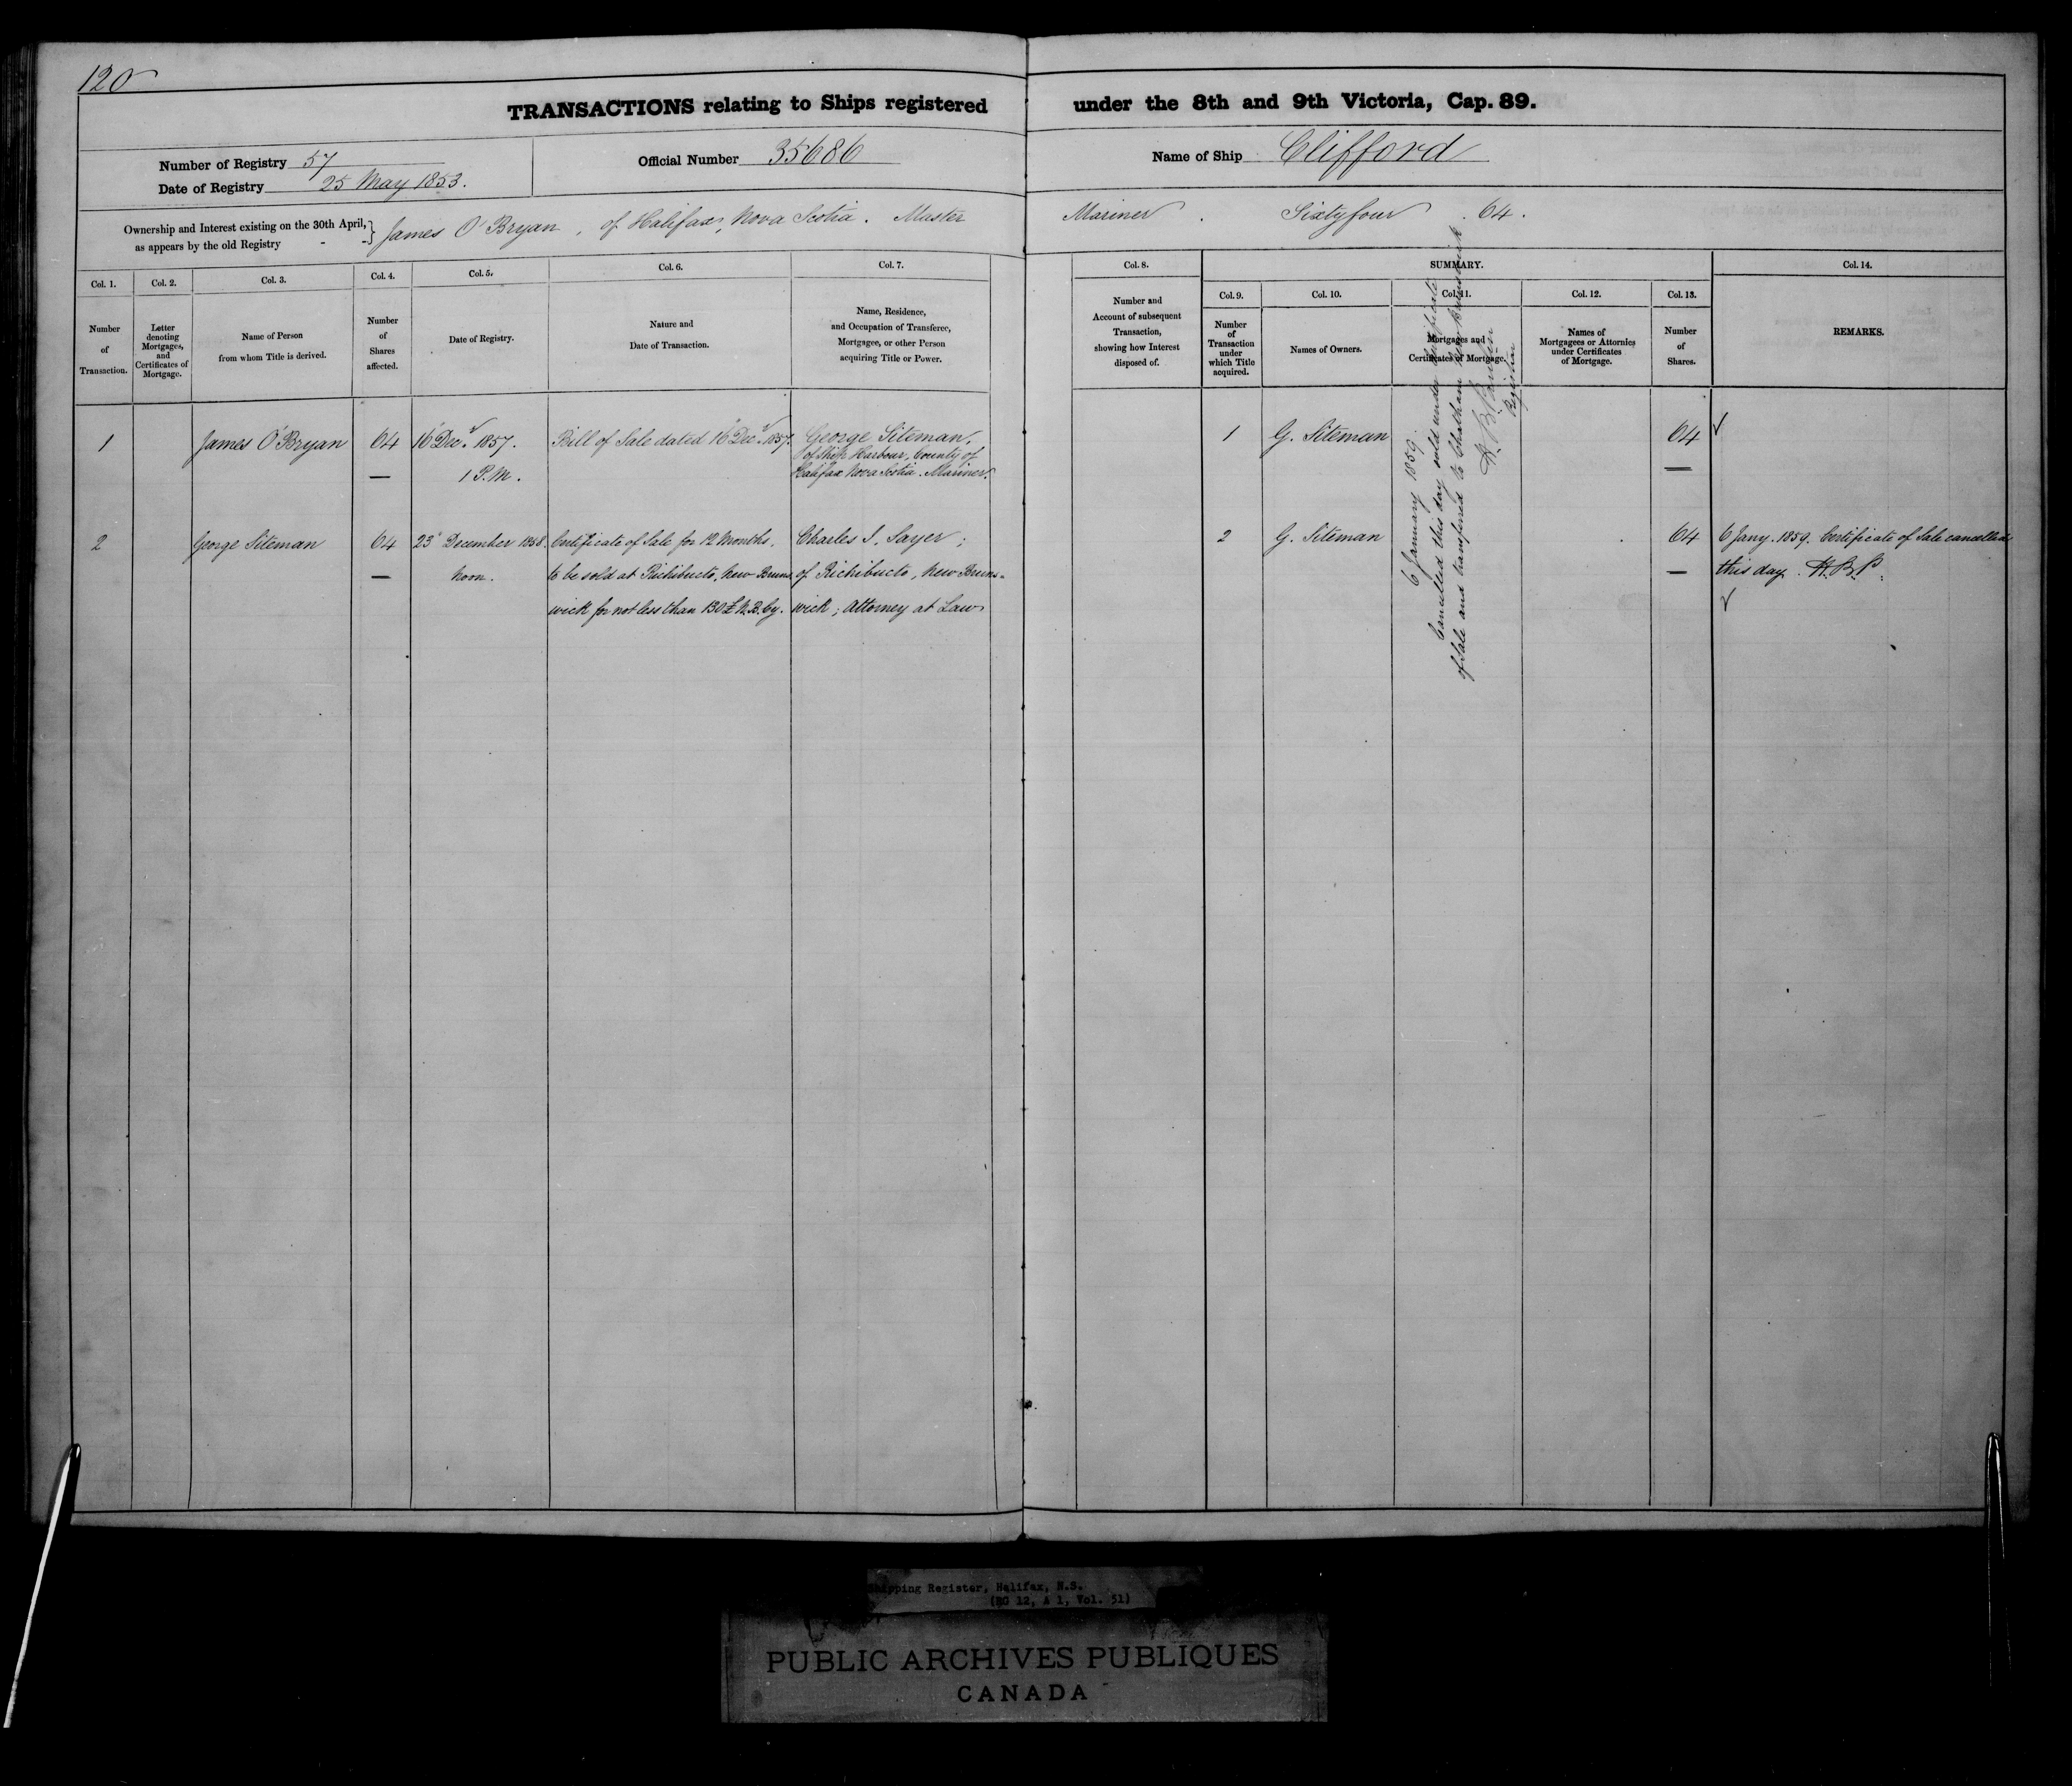 120
TRANSACTIONS relating to Ships registered under the 8th and 9th Victoria, Cap. 89.
Number of Registry 57
Date of Registry 25 May 1853.
Official Number 35686
Name of Ship Clifford
Ownership and Interest existing on the 30th April,
as appears by the old Registry - -} James O'Bryan, of Halifax, Nova Scotia. Master Mariner. Sixtyfour. 64.
Col. 1.
Number
of
Transaction.
Col. 2.
Letter
denoting
Mortgages,
and
Certificates of
Mortgage.
Col. 3.
Name of Person
from whom Title is derived.
Col. 4.
Number
of
Shares
affected.
Col. 5.
Date of Registry.
Col. 6.
Nature and
Date of Transaction.
Col. 7.
Name, Residence,
and Occupation of Transferee,
Mortgagee, or other Person
acquiring Title or Power.
Col. 8.
Number and
Account of subsequent
Transaction,
showing how Interest
disposed of.
SUMMARY.
Col. 9.
Number
of
Transaction
under
which Title
acquired.
Col. 10.
Names of Owners.
Col. 11.
Mortgages and
Certificates of Mortgage.
Col. 12.
Names of
Mortgagees or Attornies
under Certificates
of Mortgage.
Col. 13.
Number
of
Shares.
Col. 14.
REMARKS.
1
James O'Bryan
64
16 Decr. 1857.
1 P.M.
Bill of Sale dated 16 Decr. 1857.
George Siteman,
of Ship Harbour, County of
Halifax Nova Scotia. Mariner.
1
G. Siteman
64
2
George Siteman
64
23d December 1858.
Noon.
Certificate of Sale for 12 Months.
to be sold at Richibucto, New Bruns
wick for not less than 130£ N.B. by.
Charles I. Sayer;
of Richibucto, New Bruns-
wick; Attorney at Law
2
G. Siteman
64
6 Jany. 1859. Certificate of Sale cancelled
this day. H.B.P.
6 January 1859.
Cancelled this day sold under Certificate
of Sale and transferred to Chatham New Brunswick
Registrar
Shipping Register, Halifax, N.S.
(RG 12, A 1, Vol. 51)
PUBLIC ARCHIVES PUBLIQUES
CANADA